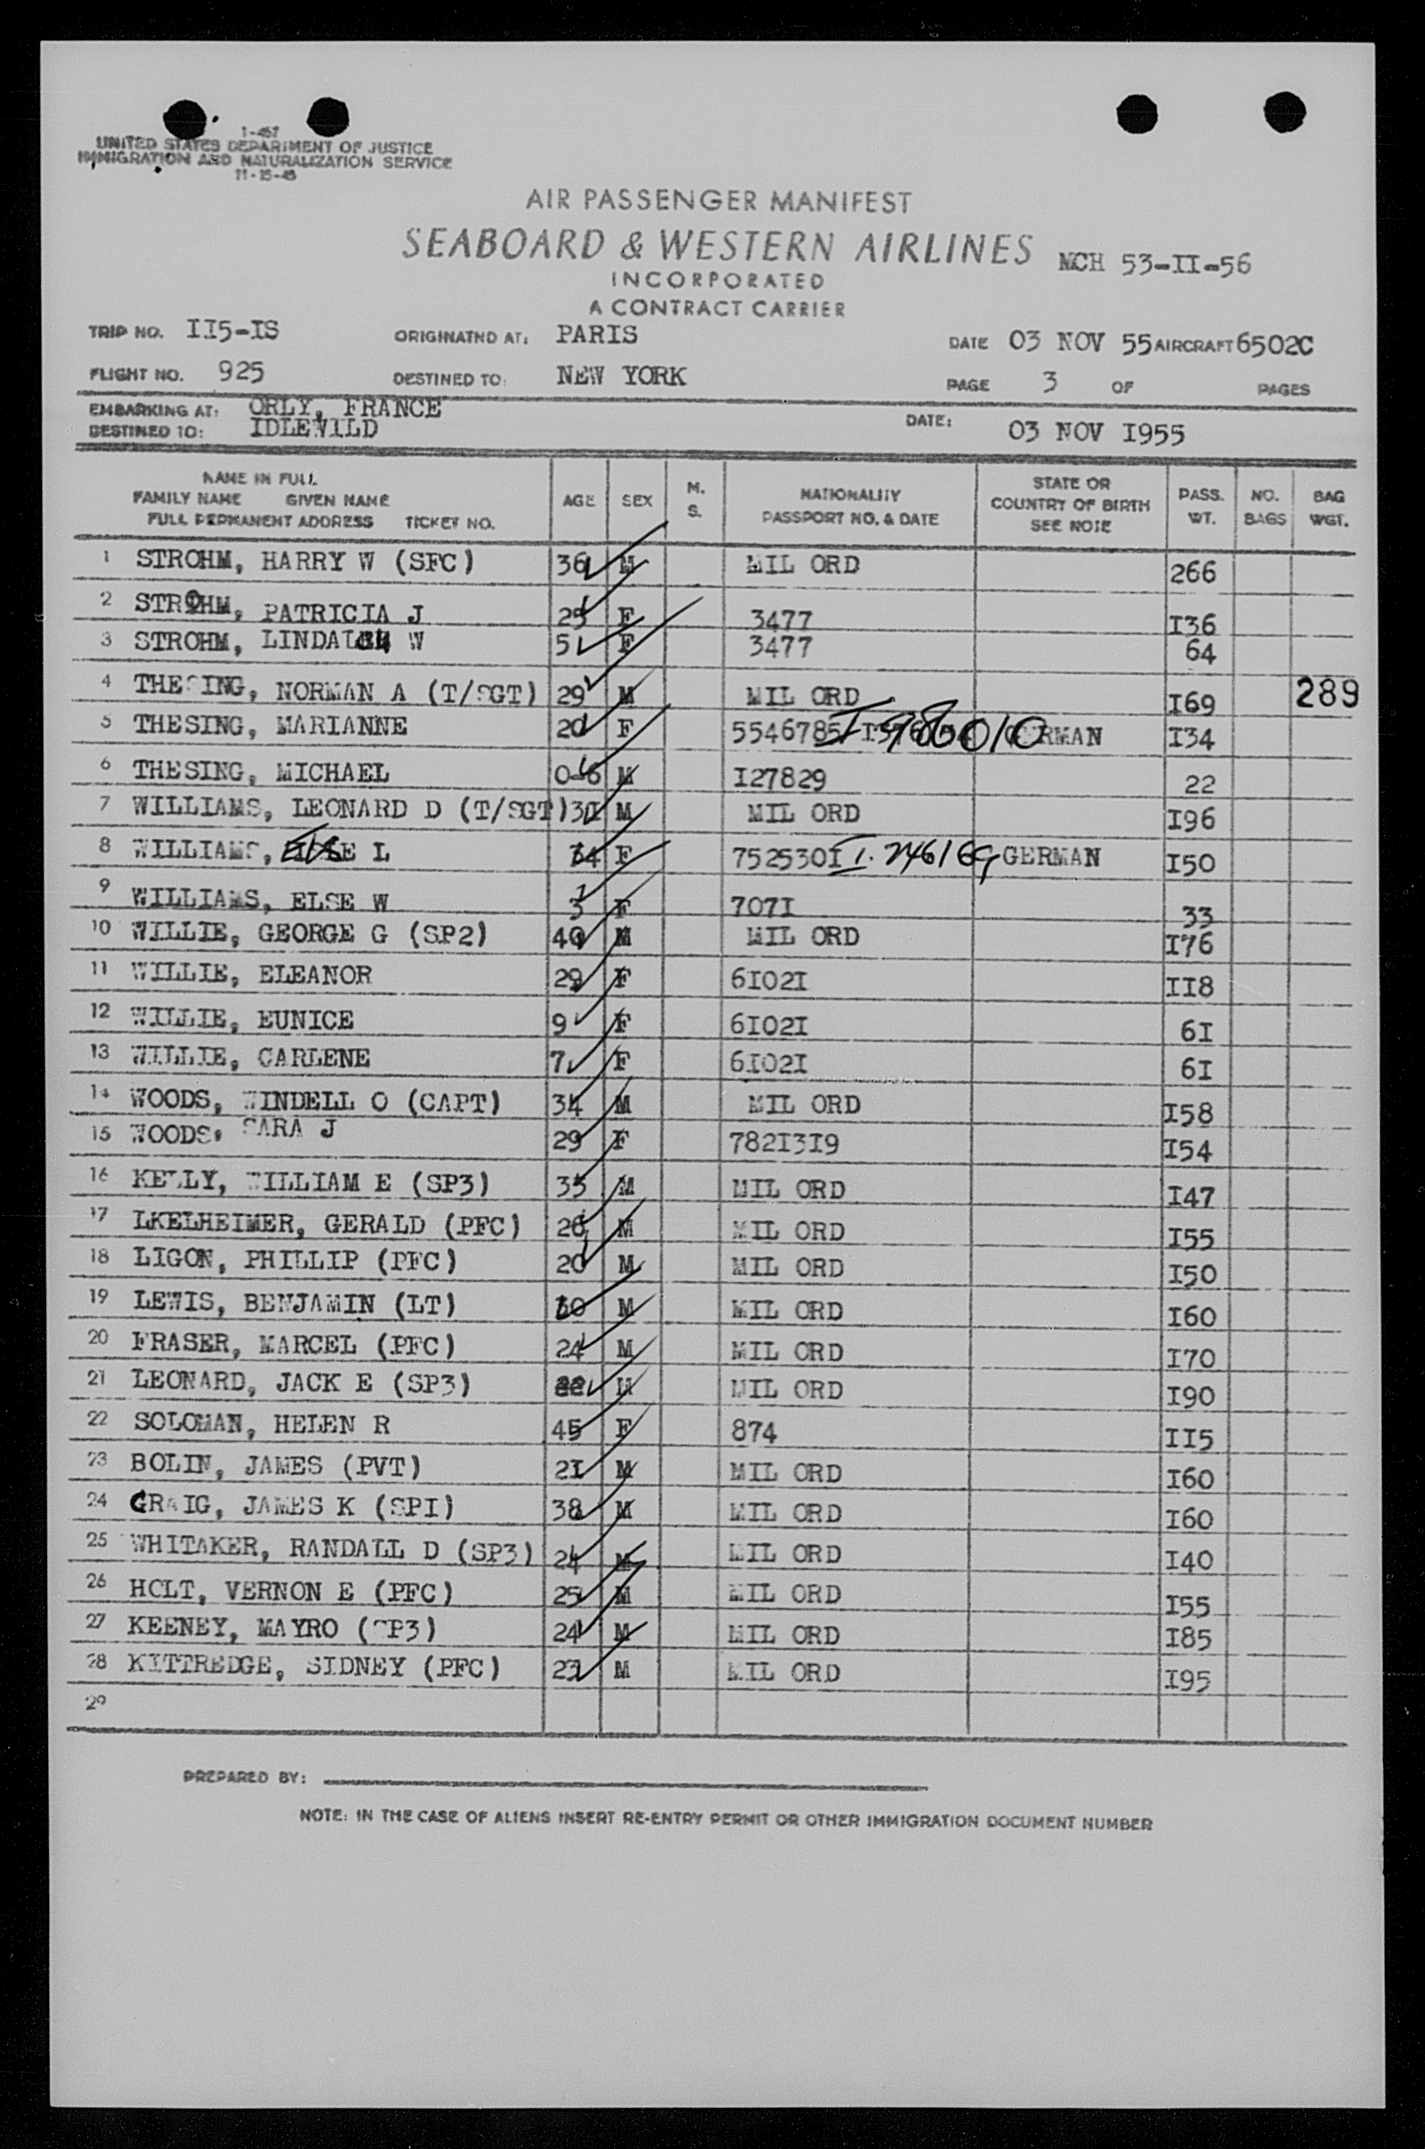 1-457
UNITED STATES DEPARTMENT OF JUSTICE
IMMIGRATION AND NATURALIZATION SERVICE
11-15-48
AIR PASSENGER MANIFEST
SEABOARD & WESTERN AIRLINES MCH 53-II-56
INCORPORATED
A CONTRACT CARRIER
TRIP NO. II5-IS ORIGINATND AT: PARIS DATE 03 NOV 55 AIRCRAFT 6502C
FLIGHT NO. 925 DESTINED TO: NEW YORK PAGE 3 OF PAGES
EMBARKING AT: ORLY, FRANCE DATE: 03 NOV I955
DESTINED TO: IDLEWILD
NAME IN FULL
FAMILY NAME GIVEN NAME
FULL PERMANENT ADDRESS TICKET NO.
AGE SEX M. S. NATIONALITY PASSPORT NO. & DATE STATE OR COUNTRY OF BIRTH SEE NOTE PASS. WT. NO. BAGS BAG WGT.
1 STROHM, HARRY W (SFC) 36 M MIL ORD 266
2 STROHM, PATRICIA J 25 F 3477 I36
3 STROHM, W 5 F 3477 64
4 THESING, NORMAN A (T/SGT) 29 M MIL ORD I69 289
5 THESING, MARIANNE 20 F 5546785 I-986010 GERMAN I34
6 THESING, MICHAEL 0-6 M I27829 22
7 WILLIAMS, LEONARD D (T/SGT) M MIL ORD I96
8 WILLIAMS, L 34 F 752530I GERMAN I50
9 WILLIAMS, ELSE W 3 F 707I 33
10 WILLIE, GEORGE G (SP2) 40 M MIL ORD I76
11 WILLIE, ELEANOR 29 F 6I02I II8
12 WILLIE, EUNICE 9 F 6I02I 6I
13 WILLIE, CARLENE 7 F 6I02I 6I
14 WOODS, WINDELL O (CAPT) 34 M MIL ORD I58
15 WOODS, SARA J 29 F 782I3I9 I54
16 KELLY, WILLIAM E (SP3) 35 M MIL ORD I47
17 LKELHEIMER, GERALD (PFC) M MIL ORD I55
18 LIGON, PHILLIP (PFC) 20 M MIL ORD I50
19 LEWIS, BENJAMIN (LT) M MIL ORD I60
20 FRASER, MARCEL (PFC) 24 M MIL ORD I70
21 LEONARD, JACK E (SP3) M MIL ORD I90
22 SOLOMAN, HELEN R 45 F 874 II5
23 BOLIN, JAMES (PVT) 2I M MIL ORD I60
24 CRAIG, JAMES K (SPI) 38 M MIL ORD I60
25 WHITAKER, RANDALL D (SP3) 24 M MIL ORD I40
26 HOLT, VERNON E (PFC) 25 M MIL ORD I55
27 KEENEY, MAYRO (SP3) 24 M MIL ORD I85
28 KITTREDGE, SIDNEY (PFC) 23 M MIL ORD I95
29
PREPARED BY:
NOTE: IN THE CASE OF ALIENS INSERT RE-ENTRY PERMIT OR OTHER IMMIGRATION DOCUMENT NUMBER